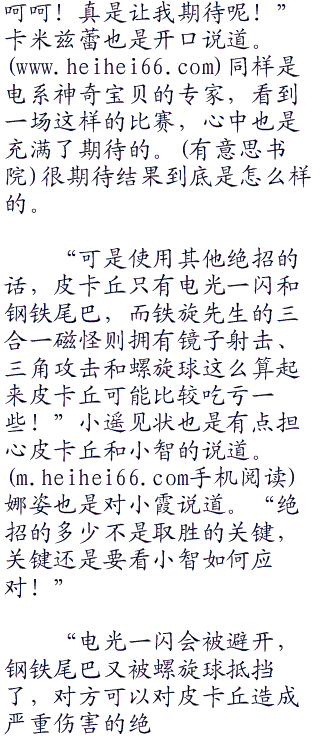 呵呵！真是让我期待呢！”
卡米兹蕾也是开口说道。
(www.heihei66.com)同样是
电系神奇宝贝的专家，看到
一场这样的比赛，心中也是
充满了期待的。(有意思书
院)很期待结果到底是怎么样
的。
“可是使用其他绝招的
话，皮卡丘只有电光一闪和
钢铁尾巴，而铁旋先生的三
合一磁怪则拥有镜子射击、
三角攻击和螺旋球这么算起
来皮卡丘可能比较吃亏一
些！”小遥见状也是有点担
心皮卡丘和小智的说道。
(m.heihei66.com手机阅读)
娜姿也是对小霞说道。“绝
招的多少不是取胜的关键，
关键还是要看小智如何应
对！”
“电光一闪会被避开，
钢铁尾巴又被螺旋球抵挡
了，对方可以对皮卡丘造成
严重伤害的绝